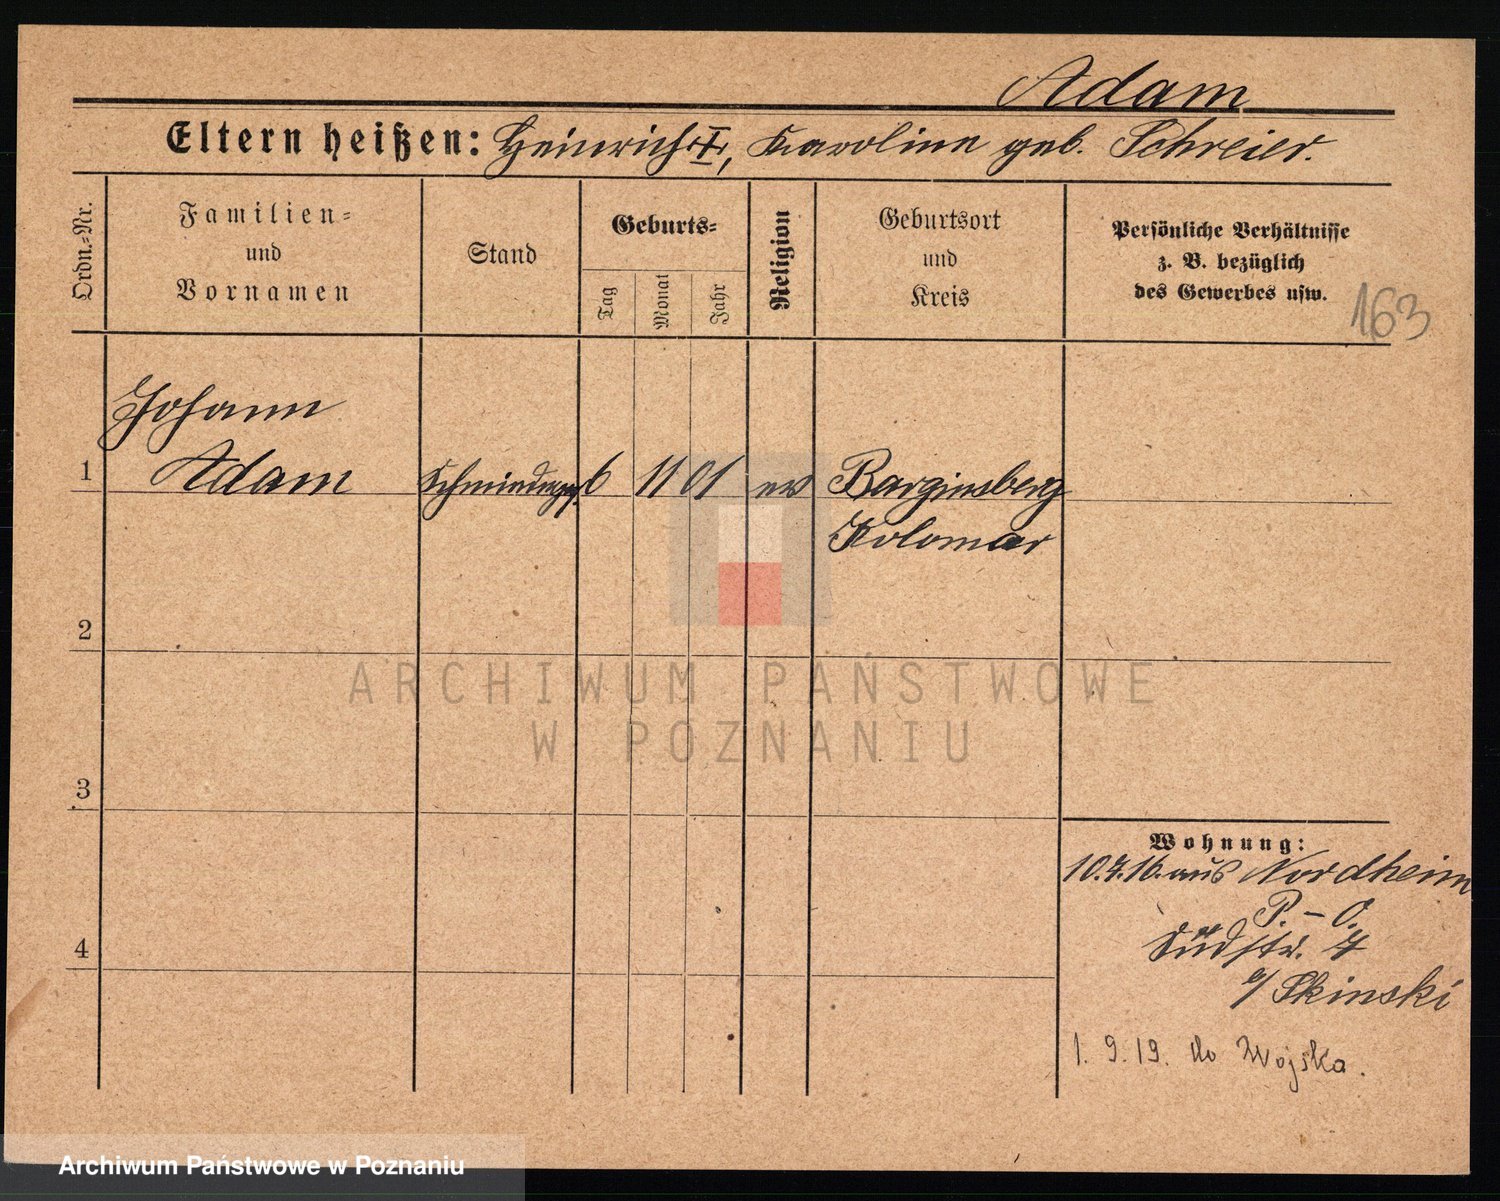 Adam
Eltern heißen: Heinrich I, Karoline geb. Schreier.
Ordn.=Nr.
Familien=
und
Vornamen
Stand
Geburts=
Tag
Monat
Jahr
Religion
Geburtsort
und
Kreis
Persönliche Verhältnisse
z. B. bezüglich
des Gewerbes usw.
163
Johann
1 Adam 6 11 01 ev Barginsberg
Kolomar
2
3
4
Wohnung:
10.7.16. aus Nordheim
P. - O.
Südstr. 7
b/ Skinski
1. 9. 19. do Wojska.
ARCHIWUM PAŃSTWOWE
W POZNANIU
Archiwum Państwowe w Poznaniu